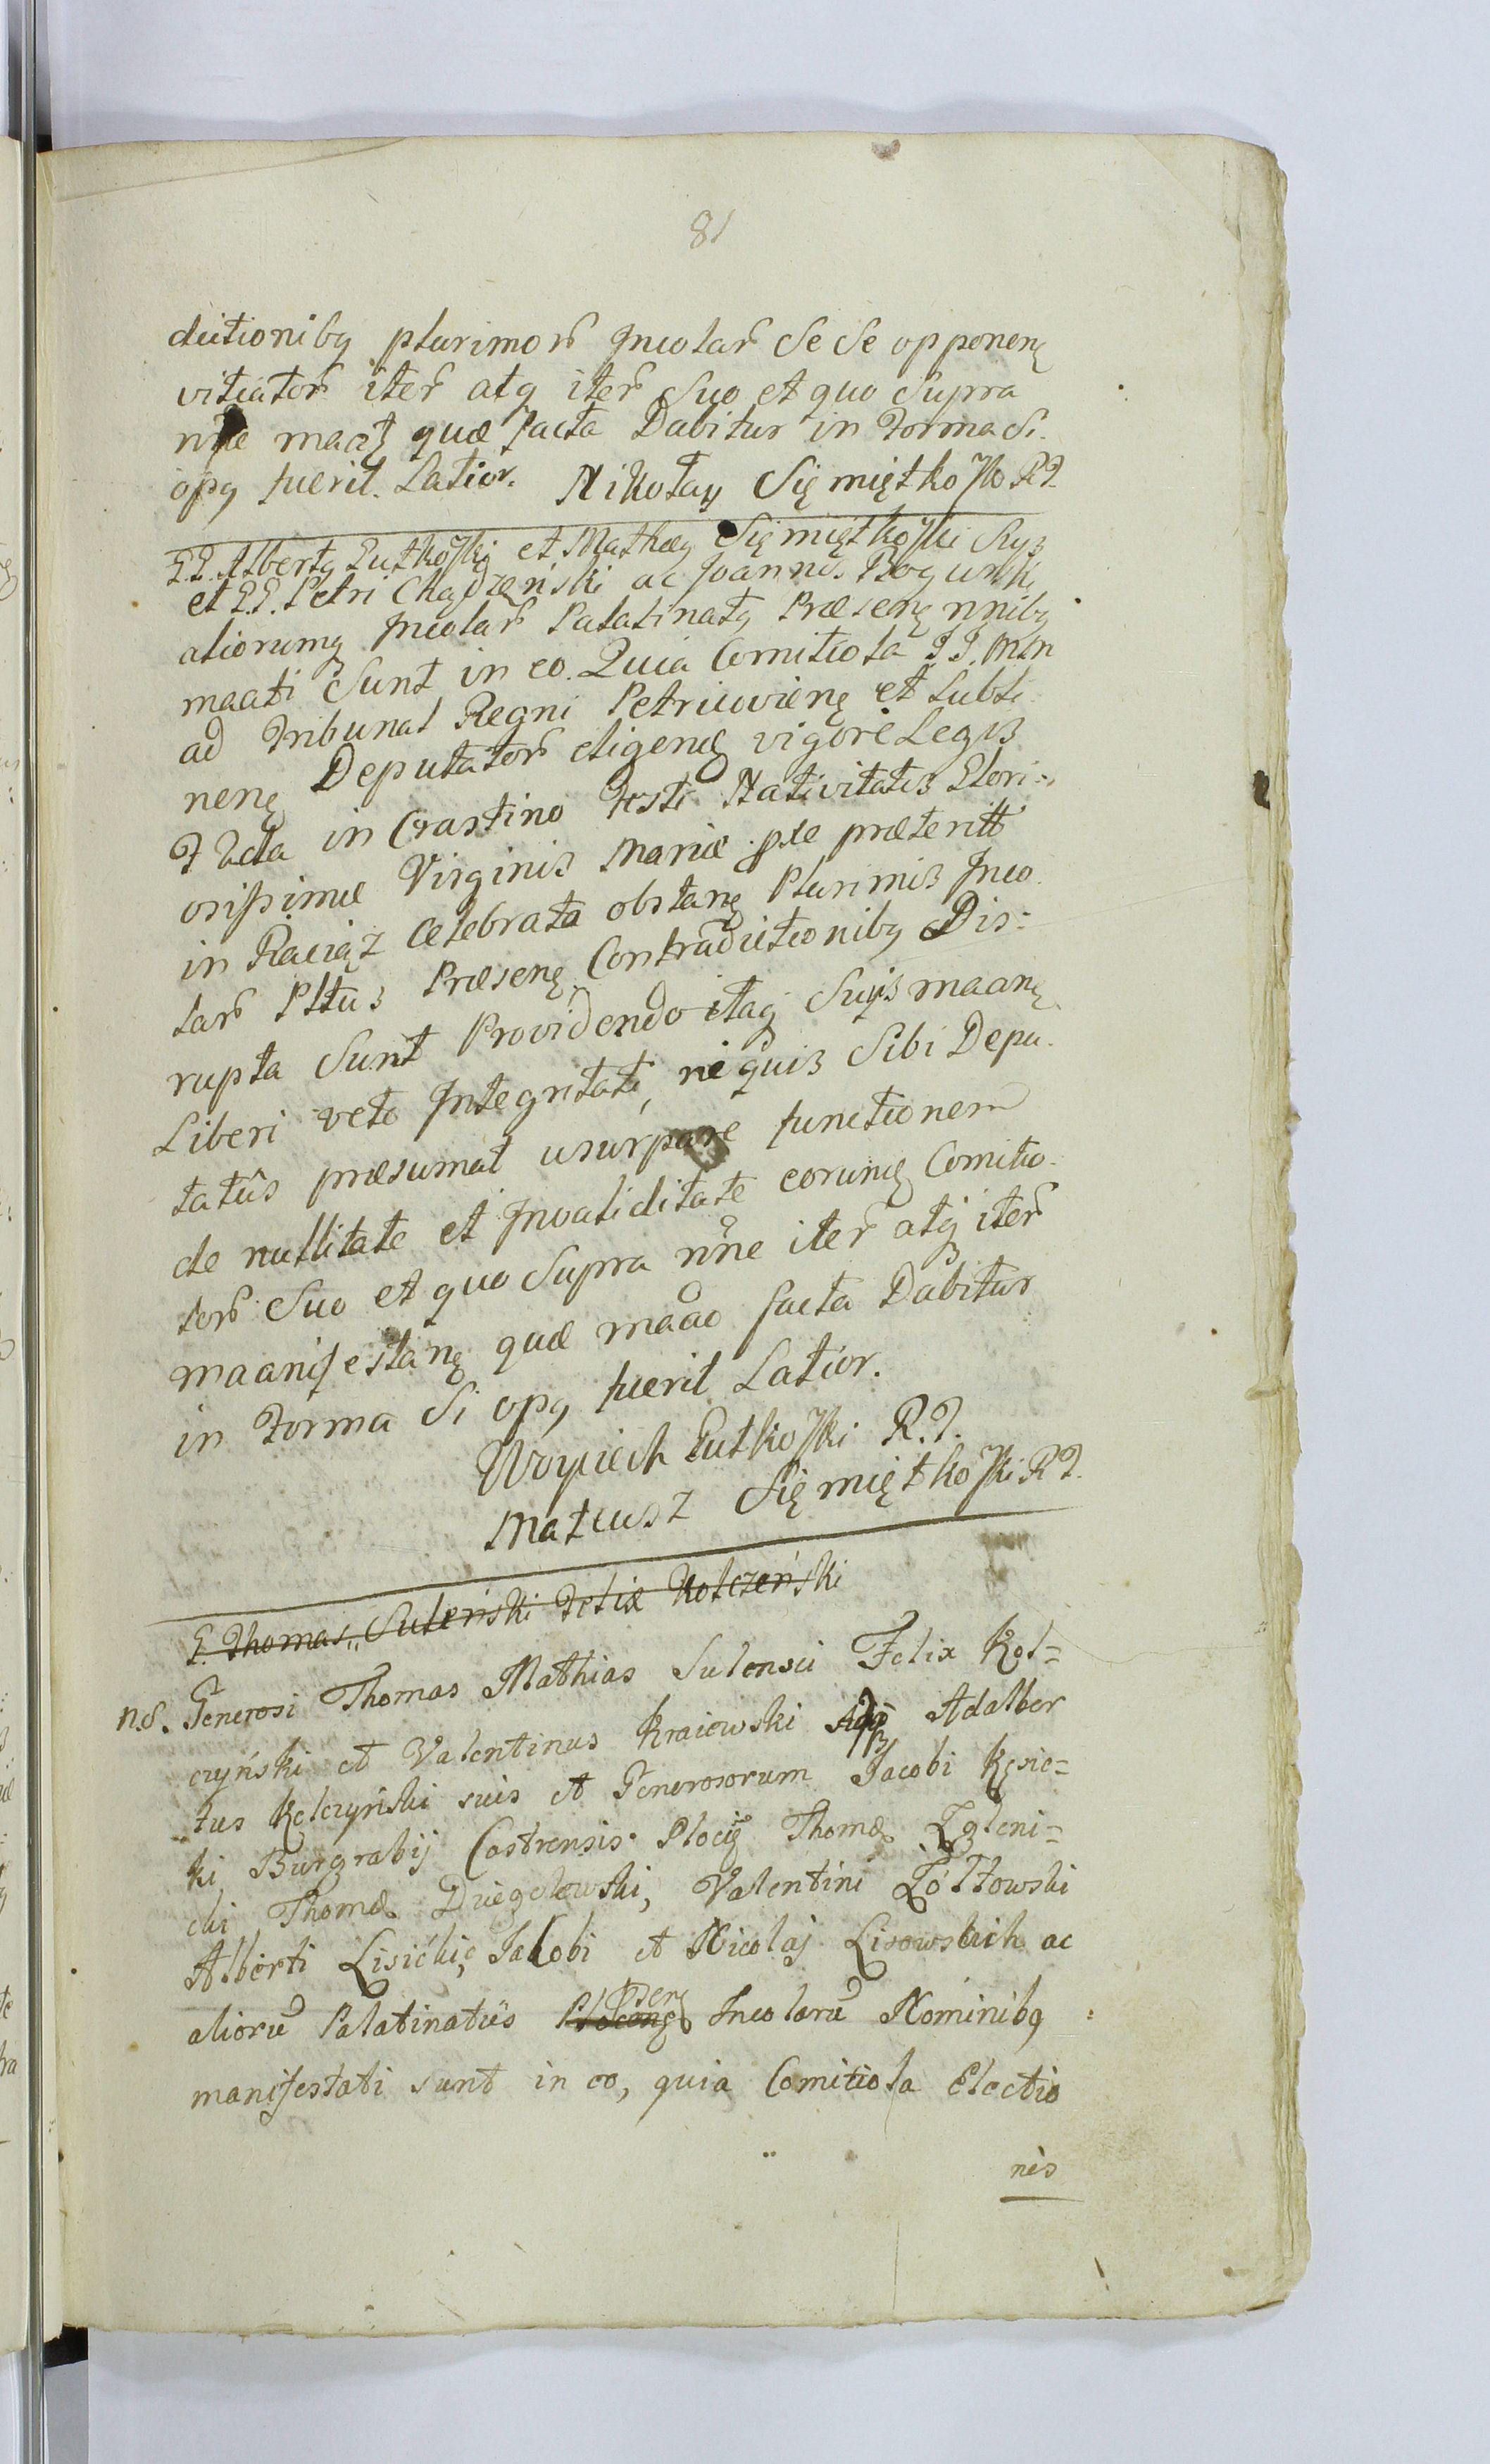 81
dictionibq plurimorũ Incolarũ Se Se opponenę
vitiatorũ iterũ atq iterũ Suo et quo Supra
nñe quæ facta Dabitur in Forma Si.
opq fuerit Latior. Mikołay Sięmiętkoski RP
GG. Albertq Lutkoski et Matheq Sięmiętkoski Suys
et GG. Petri Chądzeński ac Joannis Bogucki
aliorumq Incolarũ Palatinatq Præsenę nnibq
maati Sunt in eo. Quia Comitiola JJ. Mm
ad Tribunal Regni Petricovienę et Lubli
nenę Deputatorũ eligenę vigore Legis
Facta in Crastino Festi Nativitatis Glori=
osissimæ Virginis Mariæ pte præteritt
in Raciąż celebrata obstanę Plurimis Inco
larũ Pltus Præsenę Contradictionibq Dis=
rupta Sunt Providendo itaq Suys maanę
Liberi veto Integritati, ne quis Sibi Depu
tatûs præsumat usurpare functionem
de nullitate et Invaliditate eorunę Comitio
lorũ Suo et quo Supra nñe iterũ atq iterũ
maanifestanę quæ maao facta Dabitur
in Forma Si opq fuerit Latior.
Woyciech Lutkoski R.P.
Mateusz Sięmiętkoski RP.
G. Thomas Suleński Felix Kolczeński
n.S. Generosi Thomas Mathias Sulensci Felix Kol=
czyński et Valentinus Kraiewski Adalber
tus Kolczyński suis et Generosorum Jacobi Kęsic=
ki Burgrabij Castrensis Plocę Thomæ Zgleni=
cki Thomæ Dziegelewski, Valentini Żółtowski
Alberti Lisicki, Jakobi et Nicolaj Lisowskich ac
aliorũ Palatinatûs Plocenę Psenę Incolarũ Nominibq
manifestati sunt in eo, quia Comitiola Electio
nis